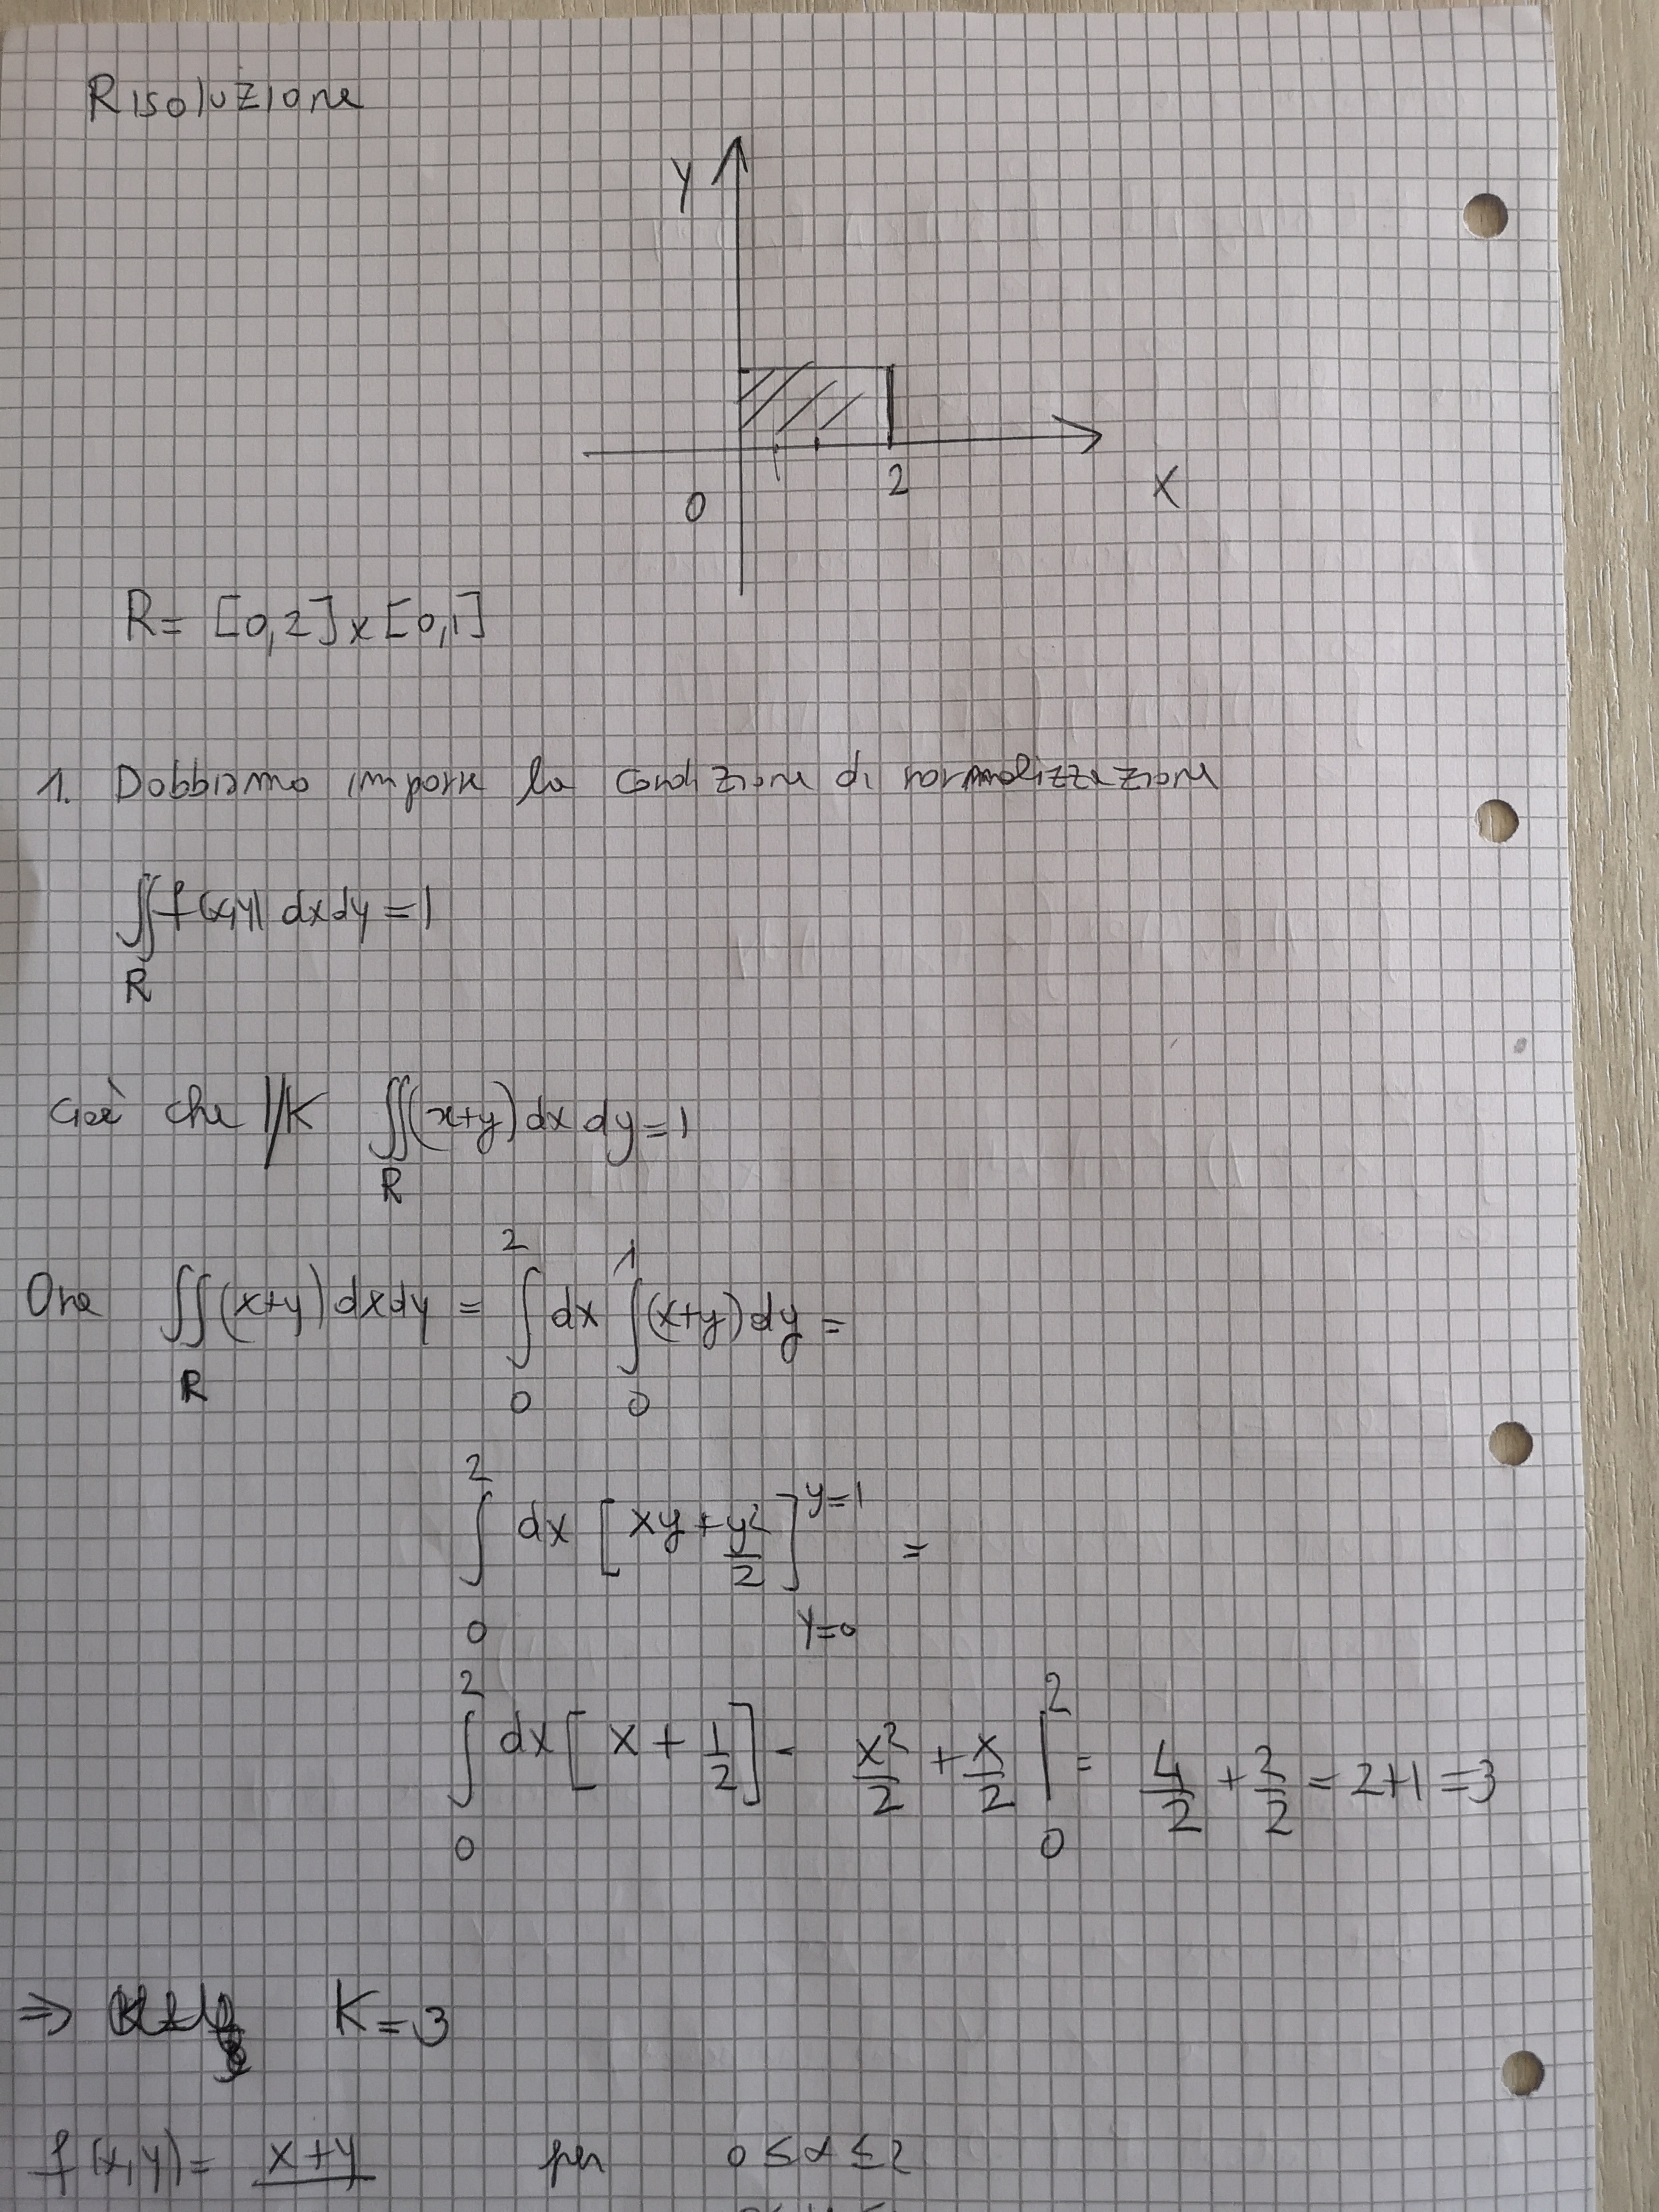 Risoluzione
y
0 2 x
R= [0,2]x[0,1]
1. Dobbiamo imporre la condizione di normalizzazione
∬_R f(x,y) dxdy =1
Cioè che 1/K ∬_R (x+y) dx dy=1
Ora ∬_R (x+y) dxdy = ∫_0^2 dx ∫_0^1 (x+y) dy =
∫_0^2 dx [xy + y²/2]_{y=0}^{y=1} =
∫_0^2 dx [x + 1/2] - x²/2 + x/2 |_0^2 = 4/2 + 2/2 = 2+1 =3
⇒ K=3
f(x,y)= x+y per 0≤x≤2